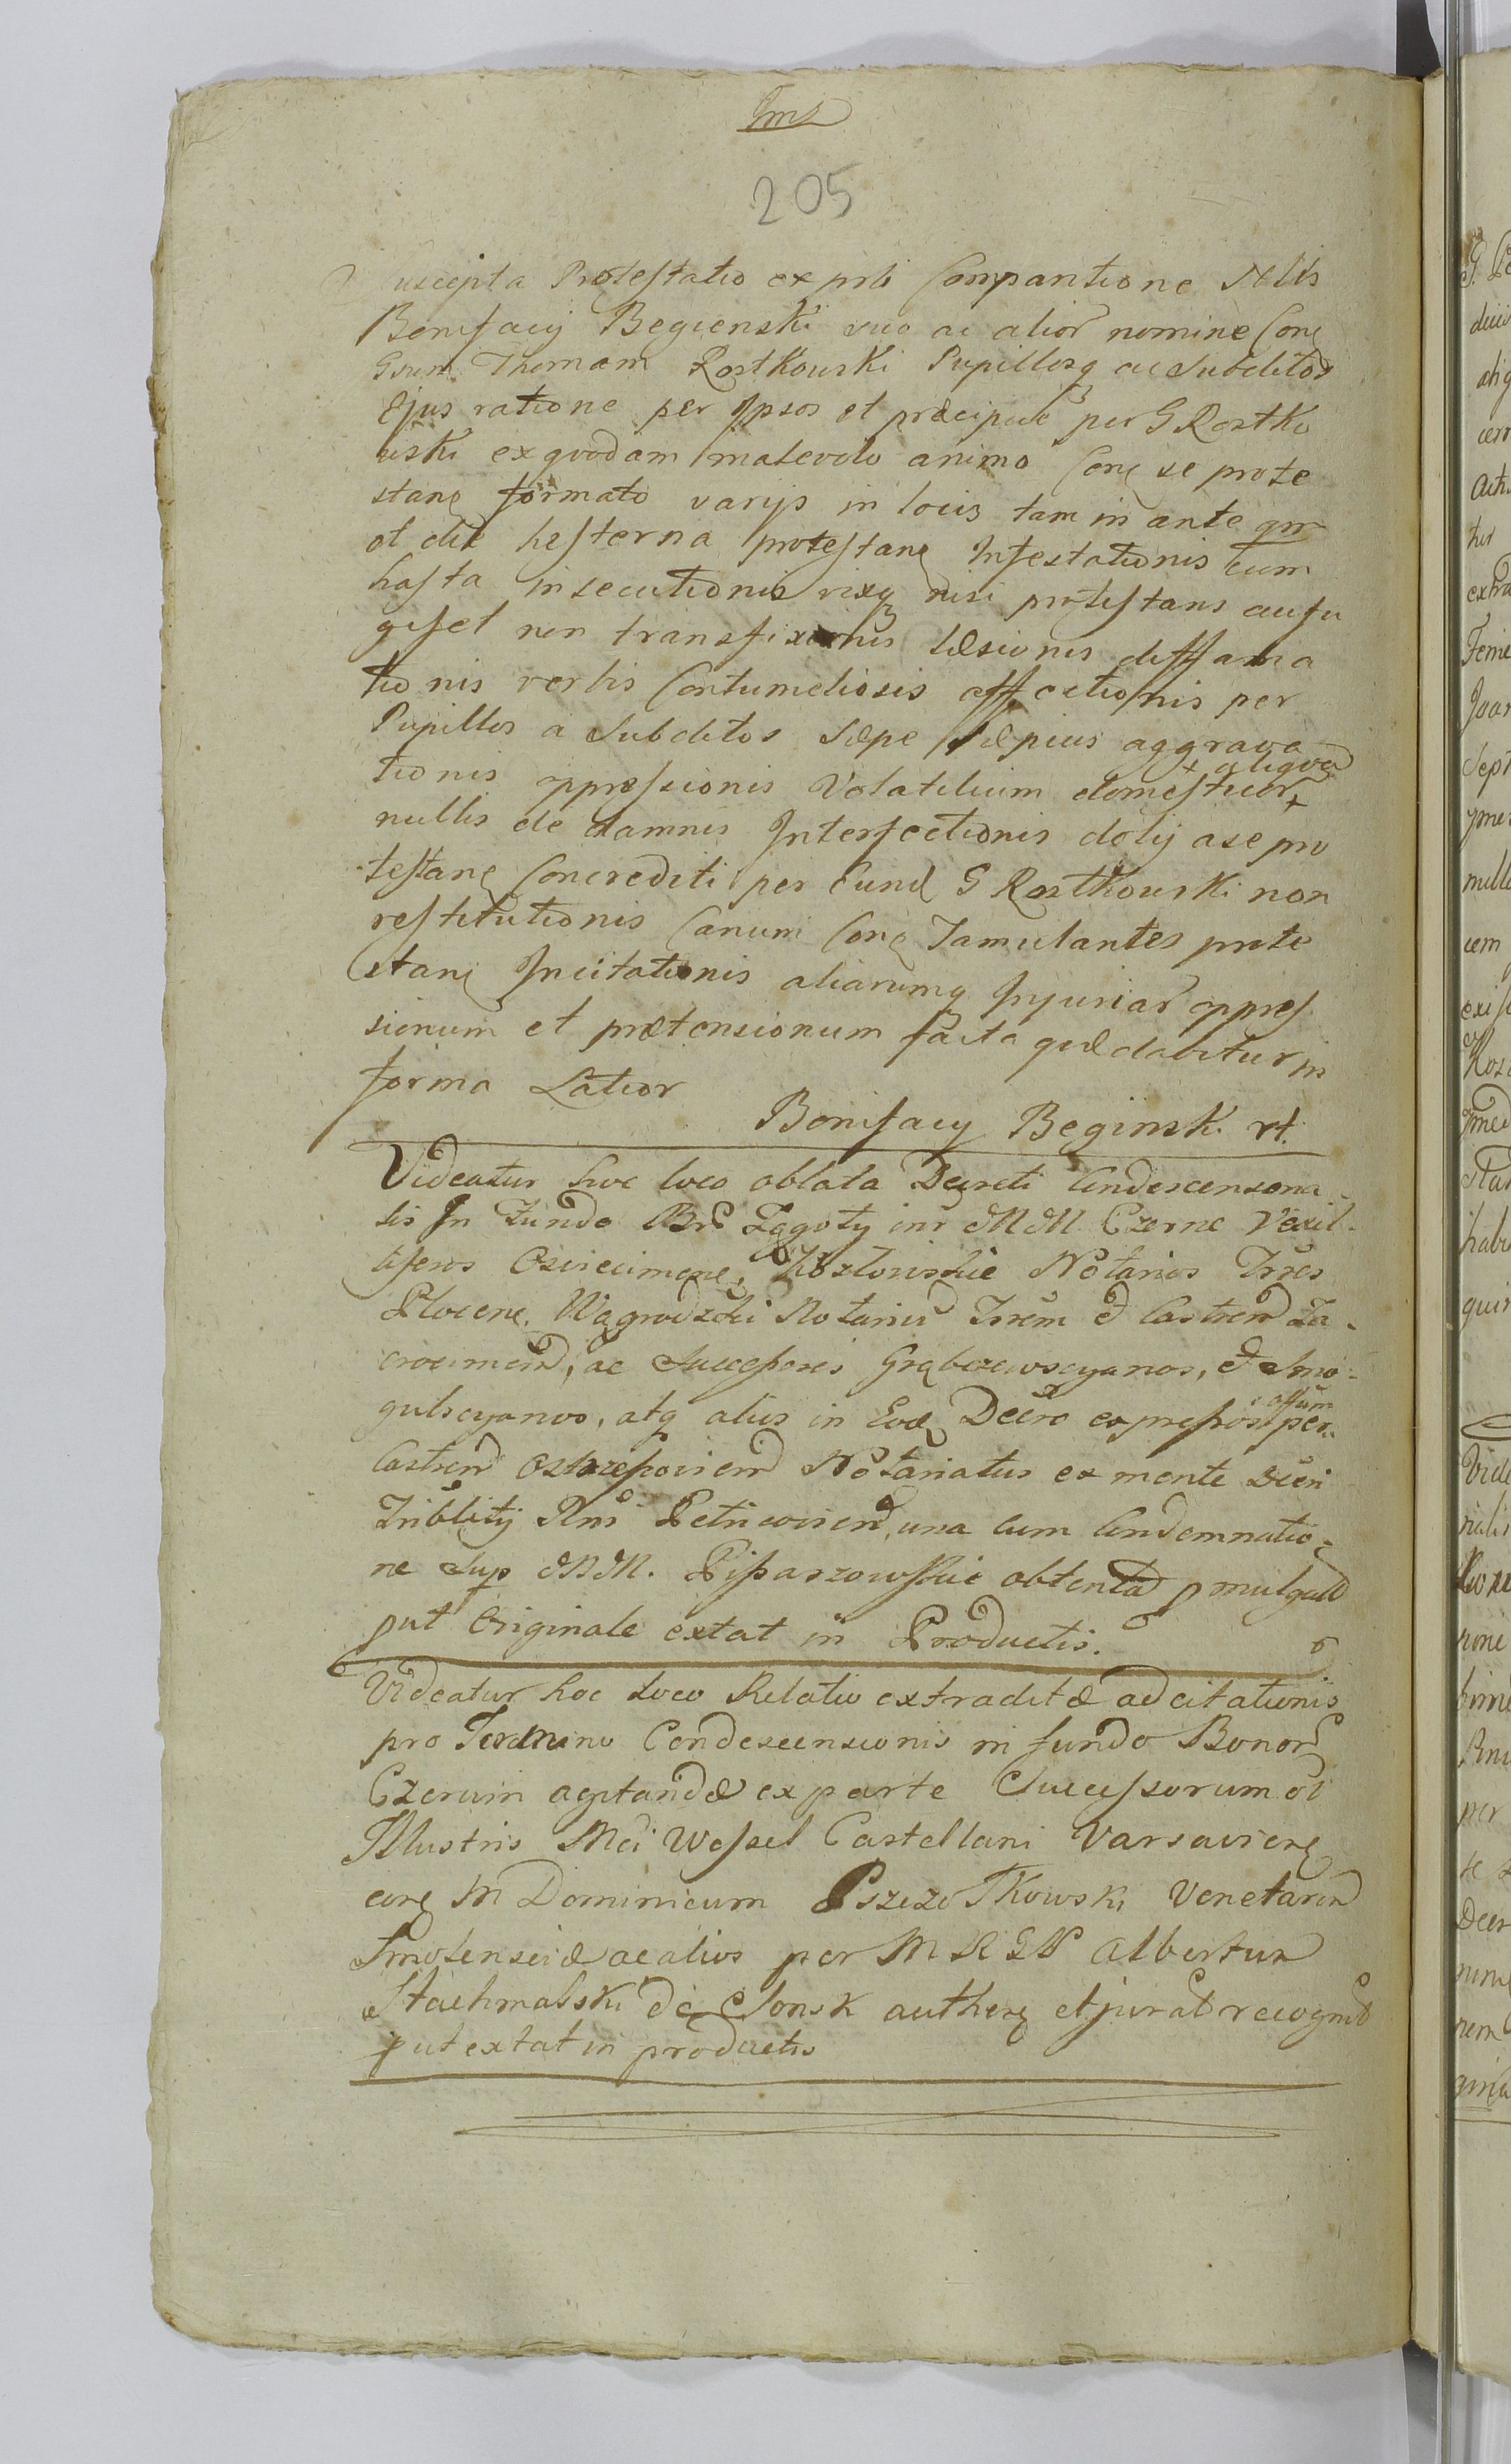 205
uscepta Protestatio ex prli Comparitione Nblis
Bonifacij Begienski suo ac alior nomine Conq
Gsum Thomam Rostkowski Pupillosq ac Subditos
Ejus ratione per Ipsos et præcipue per G Rostko
wski exqvodam malevolo animo Conq se prote
stanq formato varijs in locis tam in ante qm
et die hesterna protestanq Infestationis cum
hasta insecutionis rixq nisi protestans aufu
gisset non transfixionis læsionis diffama
tionis verbis Contumeliosis affectionis per
Pupillos a Subditos sæpe sæpius aggrava
tionis oppressionis Volatilium domesticor
+ aliqva
nullis de damnis Interfectionis dolij a se pro
testanq Concrediti per Eund G Rostkowski non
restitutionis Canum Conq Famulantes prote
stanq Incitationis aliarumq Injuriar oppres
sionum et prætensionum facta quæ dabitur in
forma Latior
Bonifacy Beginski
Videatur hoc loco oblata Decreti Condescensona
lis In Fundo Zegoty inr MM Czerne Vexil-
liferos Osviecimene, Kozlowskie Notarios Trres
Plocenq. Wagrodzki Notariu Trrem et Castren Za-
crocimen, ac Successores Grąbczewscyanos, et Smo-
gulscyanos, atq alius in Eod Decro expressos
offium
per
Castren Notariatus ex mente Decri
Triblity Rni Petricovien, una cum Condemnatio-
ne sup MM. obtenta pmulgat
put Originale extat in Productis.
Videatur hoc Loco Relatio extraditæ adcitationis
pro Termino Condescensionis in fundo Bonor
Czervin agitandæ ex parte Successorum ol
Illustris Mci Wessel Castellani Varsavienq
conq M Dominicum Pszczolkowski Venetarin
Smolensciæ ac alios per M R G N Albertum
Stachmalski de Slonsk authenq et jurat recognit
put extat in productis